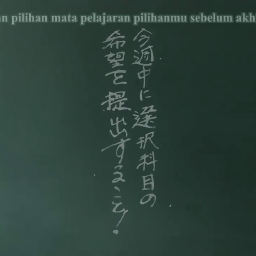 an pilihan mata pelajaran pilihanmu sebelum akh
今週中に選択科目の
希望を提出すること！